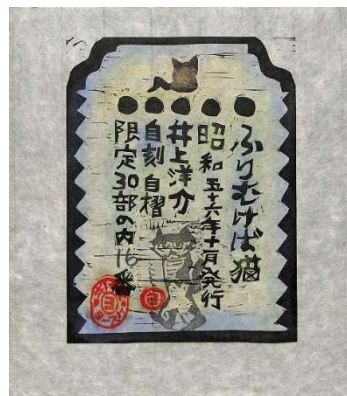 ふりむけば猫
昭和五十六年十月発行
井上洋介
自刻自摺
限定30部の内16番